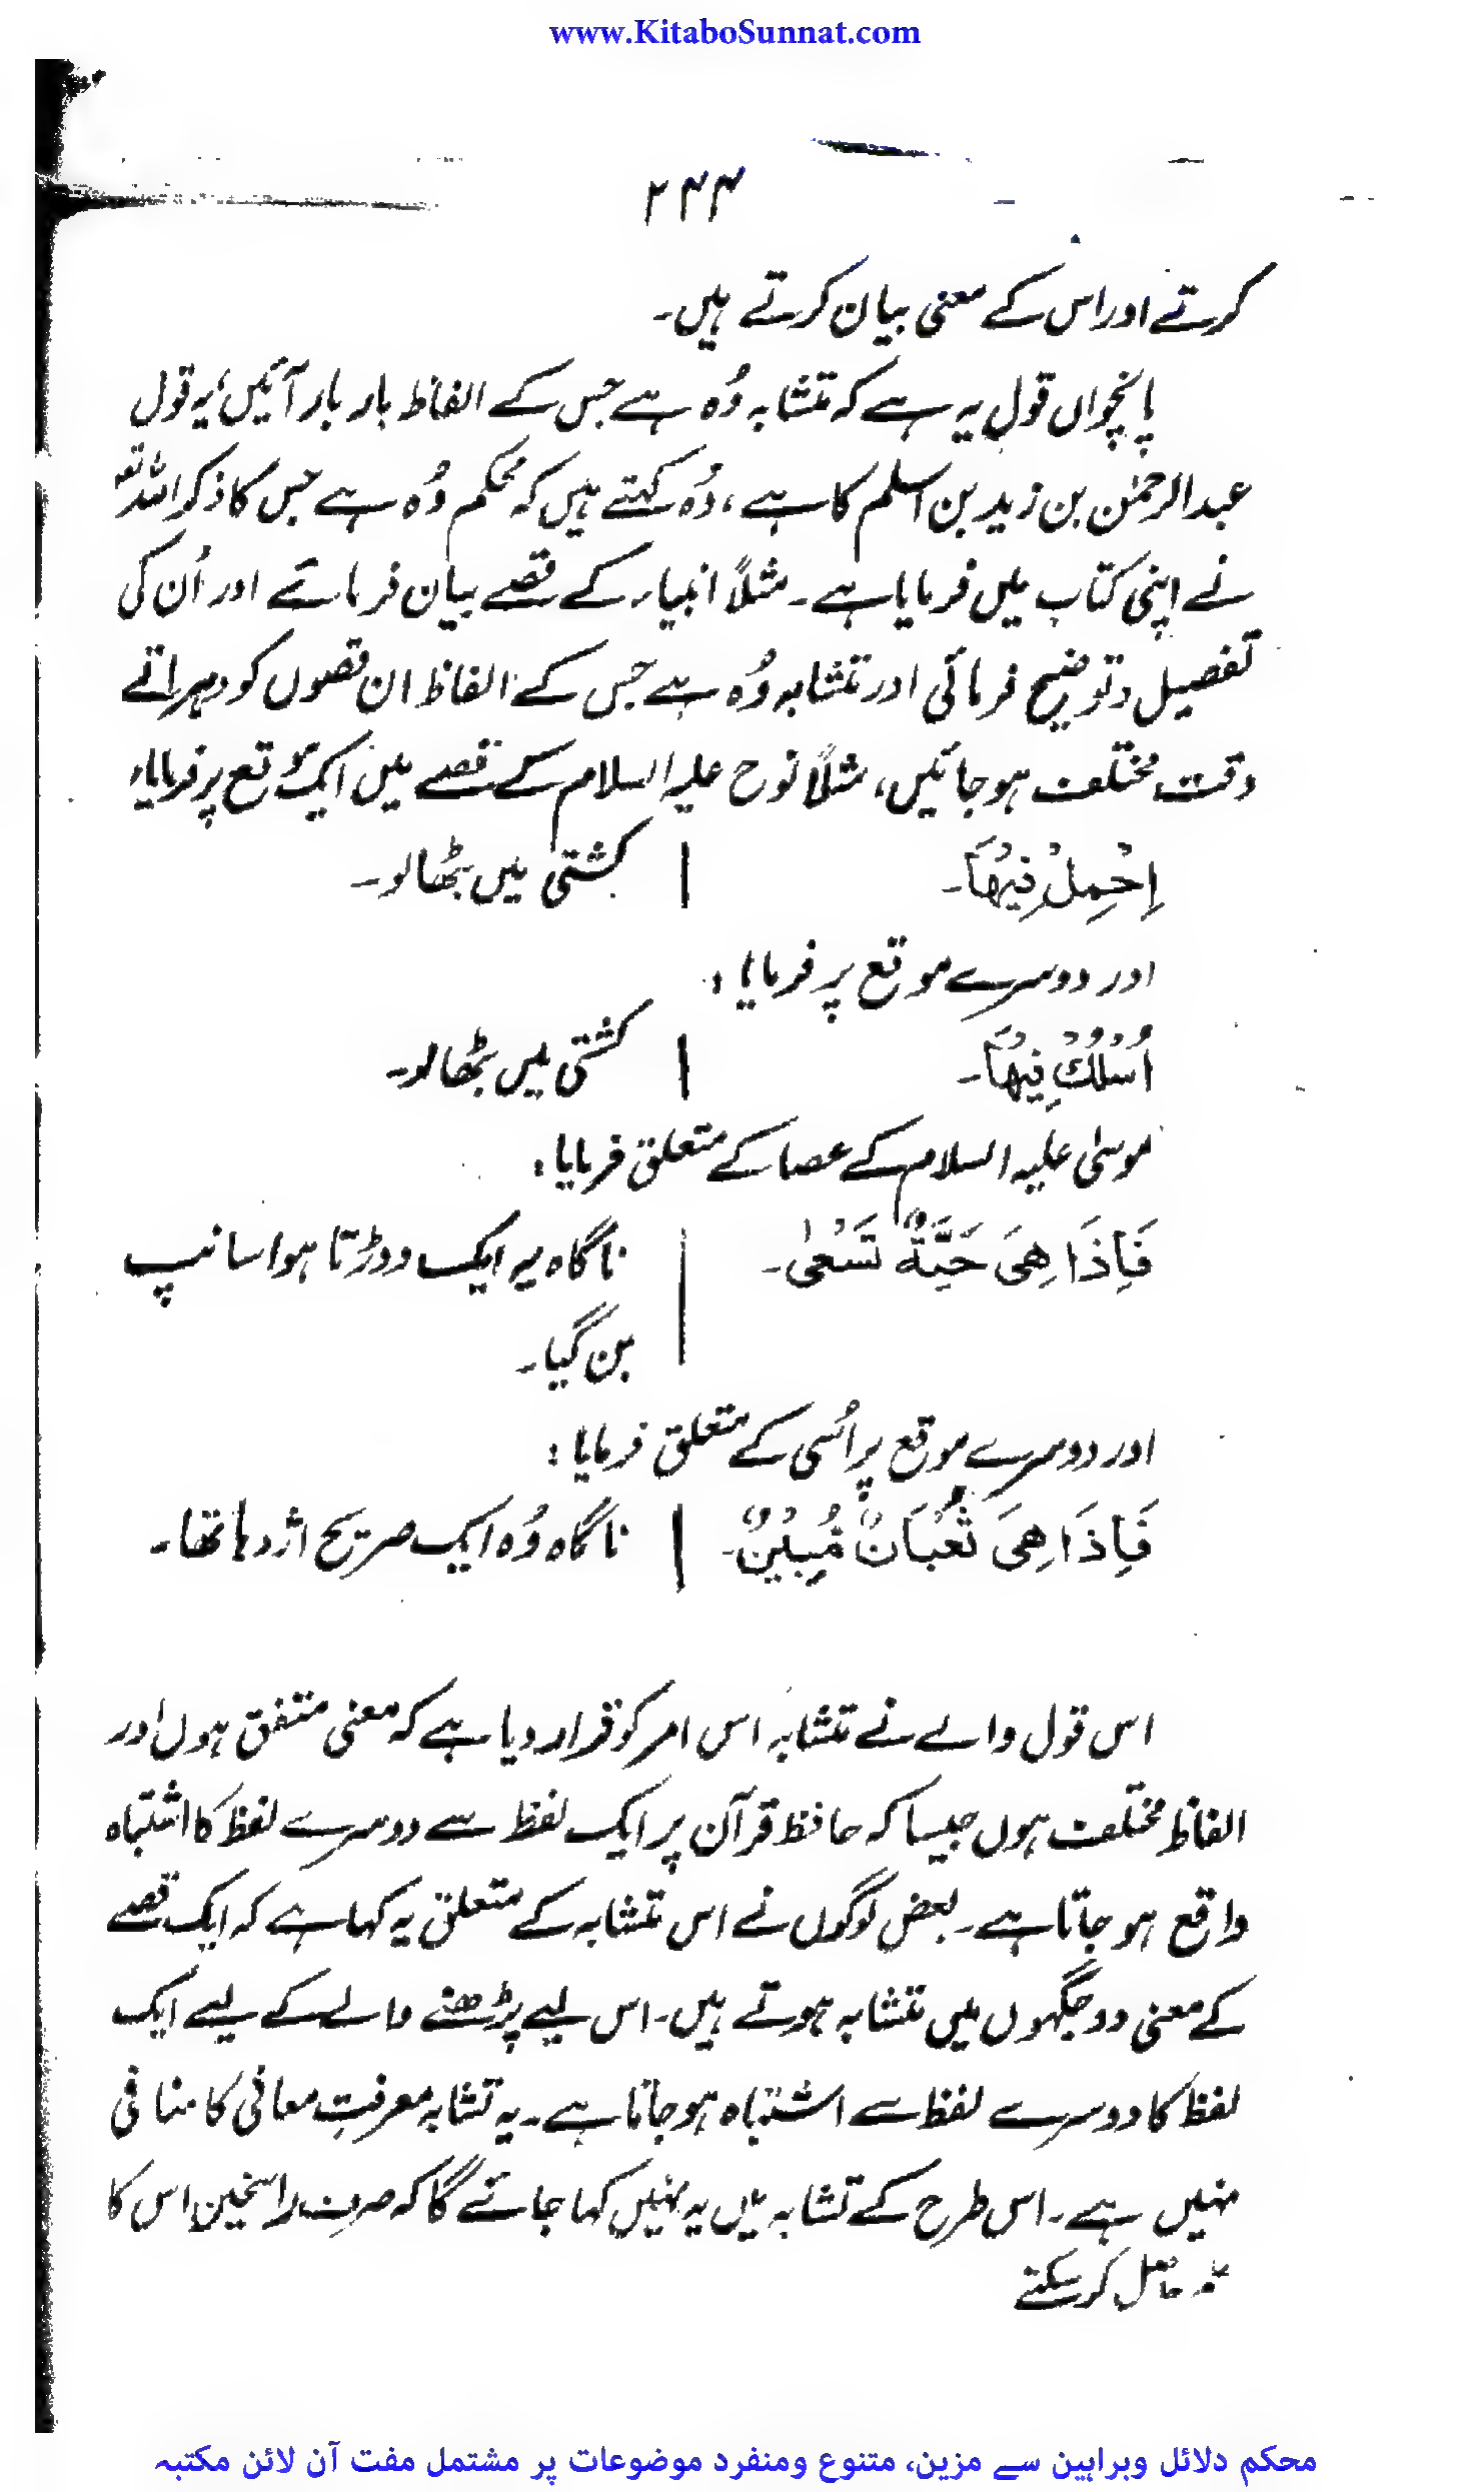 www.KitaboSunnat.com
۲۴۴
کرتے اور اس کے معنی بیان کرتے ہیں۔
پانچواں قول یہ ہے کہ متشابہ وُہ ہے جس کے الفاظ بار بار آئیں، یہ قول
عبدالرحمٰن بن زید بن اسلم کا ہے، وُہ کہتے ہیں کہ محکم وُہ ہے جس کا ذکر اللہ تع
نے اپنی کتاب میں فرمایا ہے۔ مثلاً انبیاء کے قصے بیان فرمائے اور اُن کی
تفصیل و توضیح فرمائی اور متشابہ وُہ ہے جس کے الفاظ ان قصوں کو دہراتے
وقت مختلف ہو جائیں، مثلاً نوح علیہ السلام کے قصے میں ایک موقع پر فرمایا،
اِحْمِلْ فِيْهَا۔ | کشتی میں بٹھا لو۔
اور دوسرے موقع پر فرمایا:
اُسْلُكْ فِيْهَا۔ | کشتی میں بٹھا لو۔
موسیٰ علیہ السلام کے عصا کے متعلق فرمایا:
فَاِذَا هِیَ حَيَّةٌ تَسْعٰی۔ | ناگاہ یہ ایک دوڑتا ہوا سانپ
بن گیا۔
اور دوسرے موقع پر اُسی کے متعلق فرمایا:
فَاِذَا هِیَ ثُعْبَانٌ مُّبِيْنٌ۔ | ناگاہ وُہ ایک صریح اژدہا تھا۔
اس قول والے نے متشابہ اس امر کو قرار دیا ہے کہ معنی متفق ہوں اور
الفاظ مختلف ہوں جیسا کہ حافظ قرآن پر ایک لفظ سے دوسرے لفظ کا اشتباہ
واقع ہو جاتا ہے۔ بعض لوگوں نے اس متشابہ کے متعلق یہ کہا ہے کہ ایک قصے
کے معنی دو جگہوں میں متشابہ ہوتے ہیں۔ اس لیے پڑھنے والے کے لیے ایک
لفظ کا دوسرے لفظ سے اشتباہ ہو جاتا ہے۔ یہ تشابہ معرفتِ معانی کا منافی
نہیں ہے۔ اس طرح کے تشابہ میں یہ نہیں کہا جائے گا کہ صرف راسخین اس کا
حاصل کر سکتے
محکم دلائل وبراہین سے مزین، متنوع ومنفرد موضوعات پر مشتمل مفت آن لائن مکتبہ